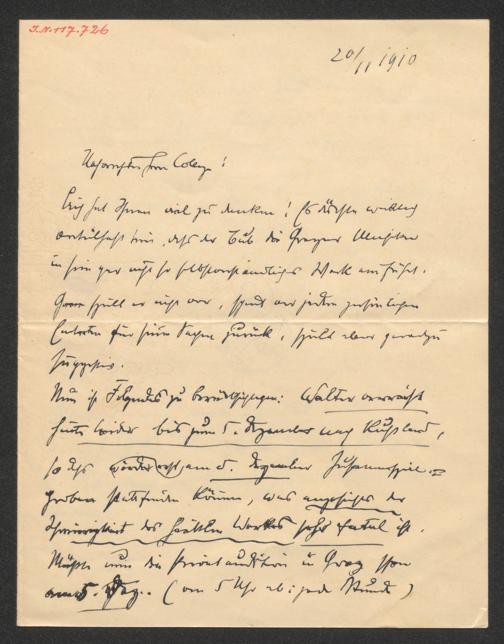 I.N. 117.726
20/11 1910
Verehrter Herr Colex!
hat Ihnen viel zu danken! Es dürfte wirklich
sein, daß der Bub die Grazer Musiker
in sein gar nicht so selbstverständliches Werk einführt.
spielt er nicht vor, jeden persönlichen
für seine Sachen zurück, spielt aber geradezu
suggestiv.
Nun ist Folgendes zu berücksichtigen: Walter verreist
heute wieder bis zum 5. Dezember nach Rußland,
so daß am 5. Dezember Zusammenspiel-
proben stattfinden können, was angesichts der
Schwierigkeit des heiklen Werkes sehr fatal ist.
Müßte nun die Privataudition in Graz schon
am 5. Dez. (um 5 Uhr ab: jede Stunde)